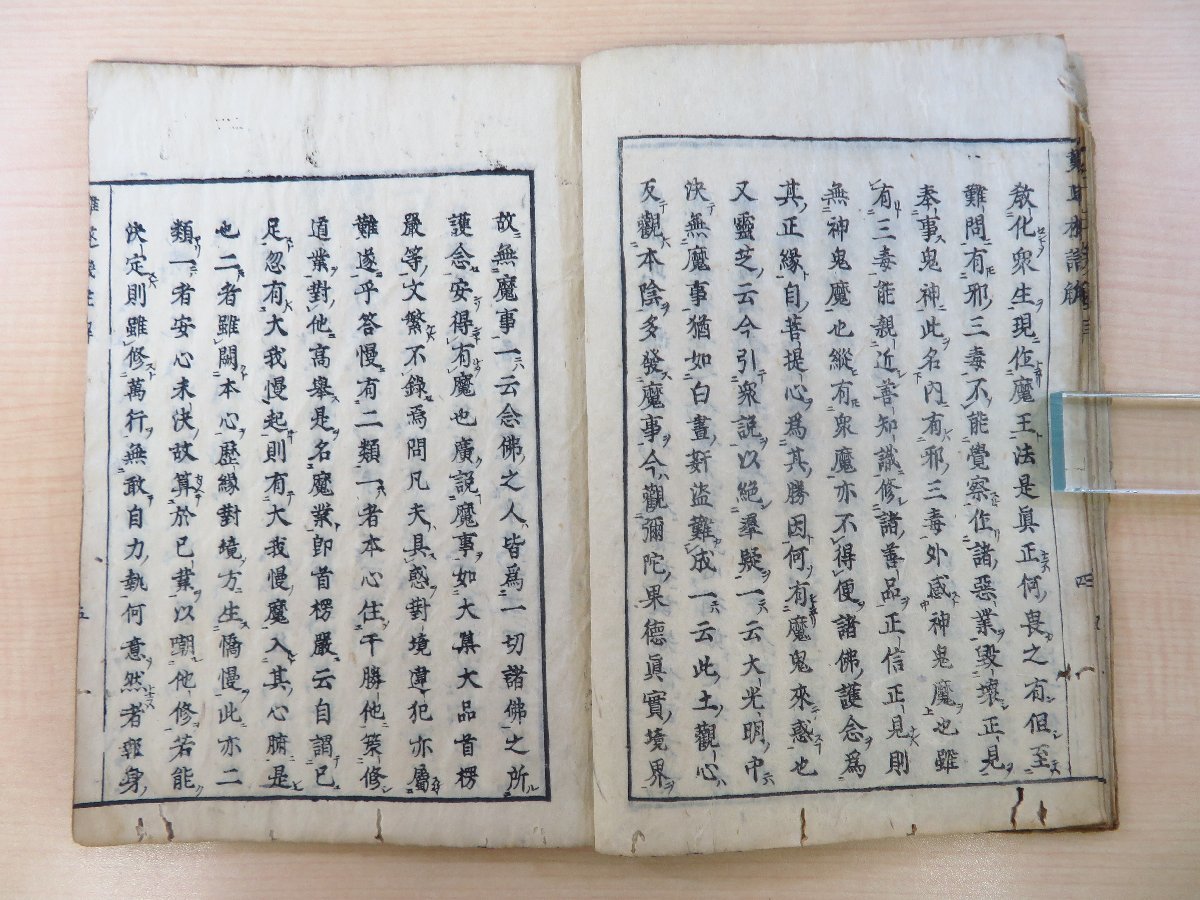 教化衆生現作魔王法是眞正何畏之有但至
難問有邪三毒不能覺察作諸惡業毀壞正見
奉事鬼神此名內有邪三毒外感神鬼魔也雖
有三毒能親近善知識修諸善品正信正見則
無神鬼魔也縱有衆魔亦不得便諸佛護念爲
其正緣自菩提心爲其勝因何有魔鬼來惑也
又靈芝云今引衆説以絶羣疑一云大光明中
決無魔事猶如白晝奸盜難成一云此土觀心
反觀本陰多發魔事今觀彌陀果德眞實境界
故無魔事一云念佛之人皆爲一切諸佛之所
護念安得有魔也廣説魔事如大集大品首楞
嚴等文繁不錄爲問凡夫具惑對境違犯亦屬
難遂乎答慢有二類一者本心住于勝他策修
道業對他高舉是名魔業卽首楞嚴云自謂已
足忽有大我慢起則有大我慢魔入其心腑是
也二者雖闕本心歷緣對境方生憍慢此亦二
類一者安心未決故算於已業以嘲他修若能
決定則雖修萬行無敢自力執何意然者報身